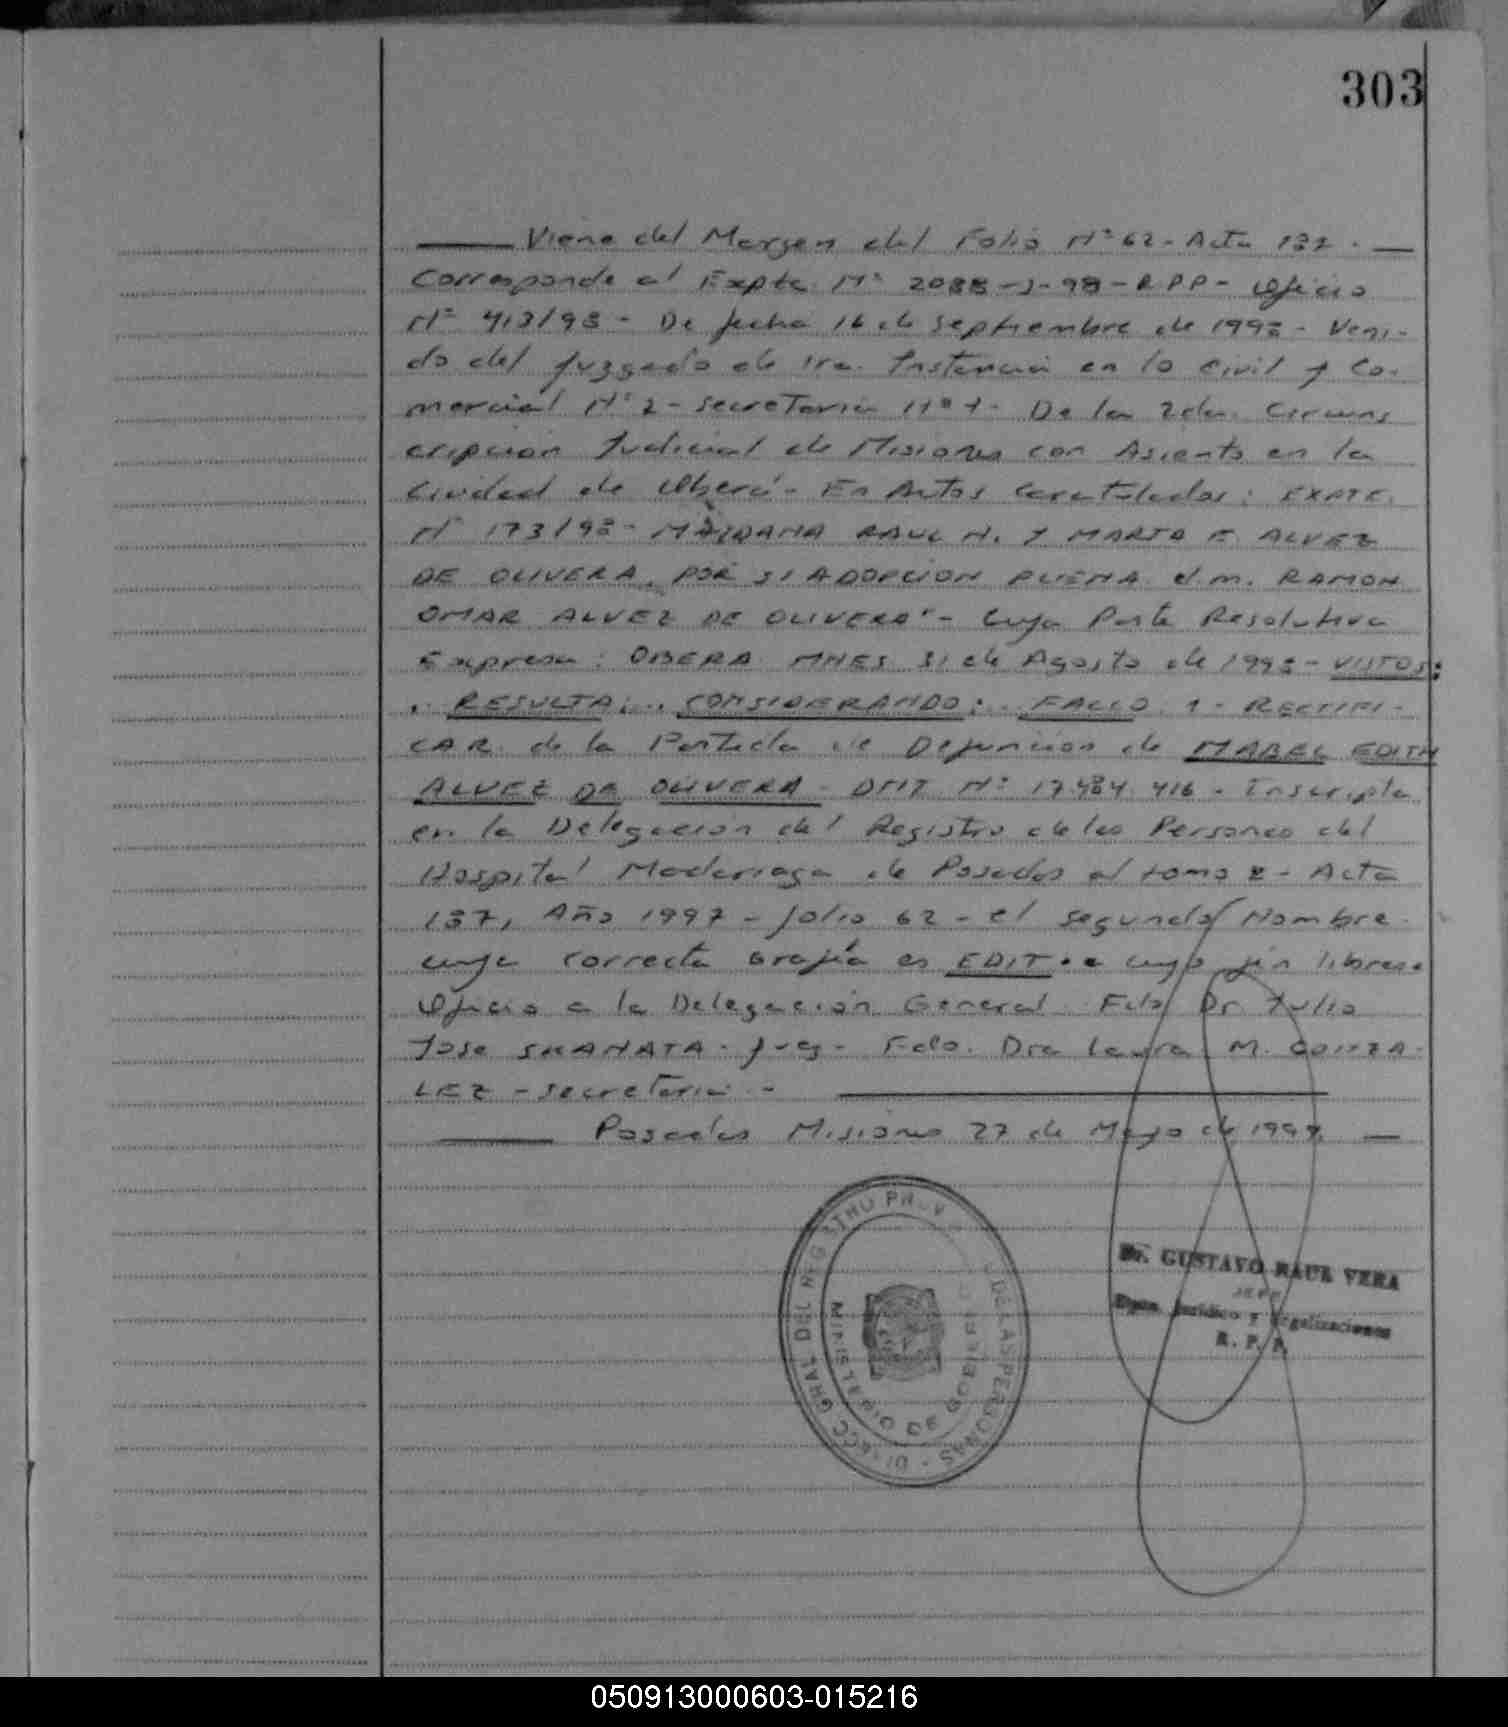 303
Viene del Margen del Folio Nº 62 - Acta 137 . -
Corresponde al Expte. Nº 2088 - J - 98 - R.P.P - Oficio
Nº 413/98 - De fecha 16 de septiembre de 1998 - Veni-
do del Juzgado de 1ra. Instancia en lo Civil y Co-
mercial Nº 2 - secretaria Nº 1 - De la 2da. Circuns
cripcion Judicial de Misiones con Asiento en la
Ciudad de Oberá - En Autos Caratulados: EXPTE.
Nº 173/98 - MAIDANA RAUL H. Y MARTA E. ALVEZ
DE OLIVERA, POR SI ADOPCION PLENA d.m. RAMON
OMAR ALVEZ DE OLIVERA" - Cuya Parte Resolutiva
Expresa: OBERA MNES 31 de Agosto de 1998 - VISTOS:
. RESULTA: . CONSIDERANDO: . FALLO 1 - RECTIFI-
CAR de la Partida de Defuncion de MABEL EDITH
ALVEZ DE OLIVERA - DNI Nº 17.484.416 - Inscripta
en la Delegacion del Registro de las Personas del
Hospital Madariaga de Posadas al tomo - Acta
137, Año 1997 - folio 62 - el segundo Nombre
cuya correcta grafía es EDIT. a cuyo fin librese
Oficio a la Delegación General. Fdo Dr. Julio
Jose SKANATA - Juez - Fdo. Dra Laura M. GONZA-
LEZ - secretaria. -
Posadas Misiones 27 de Mayo de 1999. -
DIRECC GRAL DEL REGISTRO PROV DE LAS PERSONAS -
MINISTERIO DE GOBIERNO
Dr. GUSTAVO RAUL VERA
JEFE
Dpto. Jurídico y Legalizaciones
R. P. P.
050913000603-015216